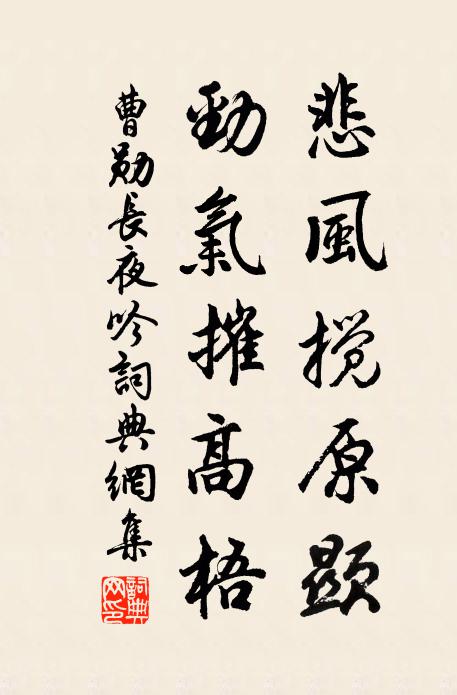 悲風搅原顕
勁氣摧高梧
曹勛長夜吟詞典網集
詞典
网印